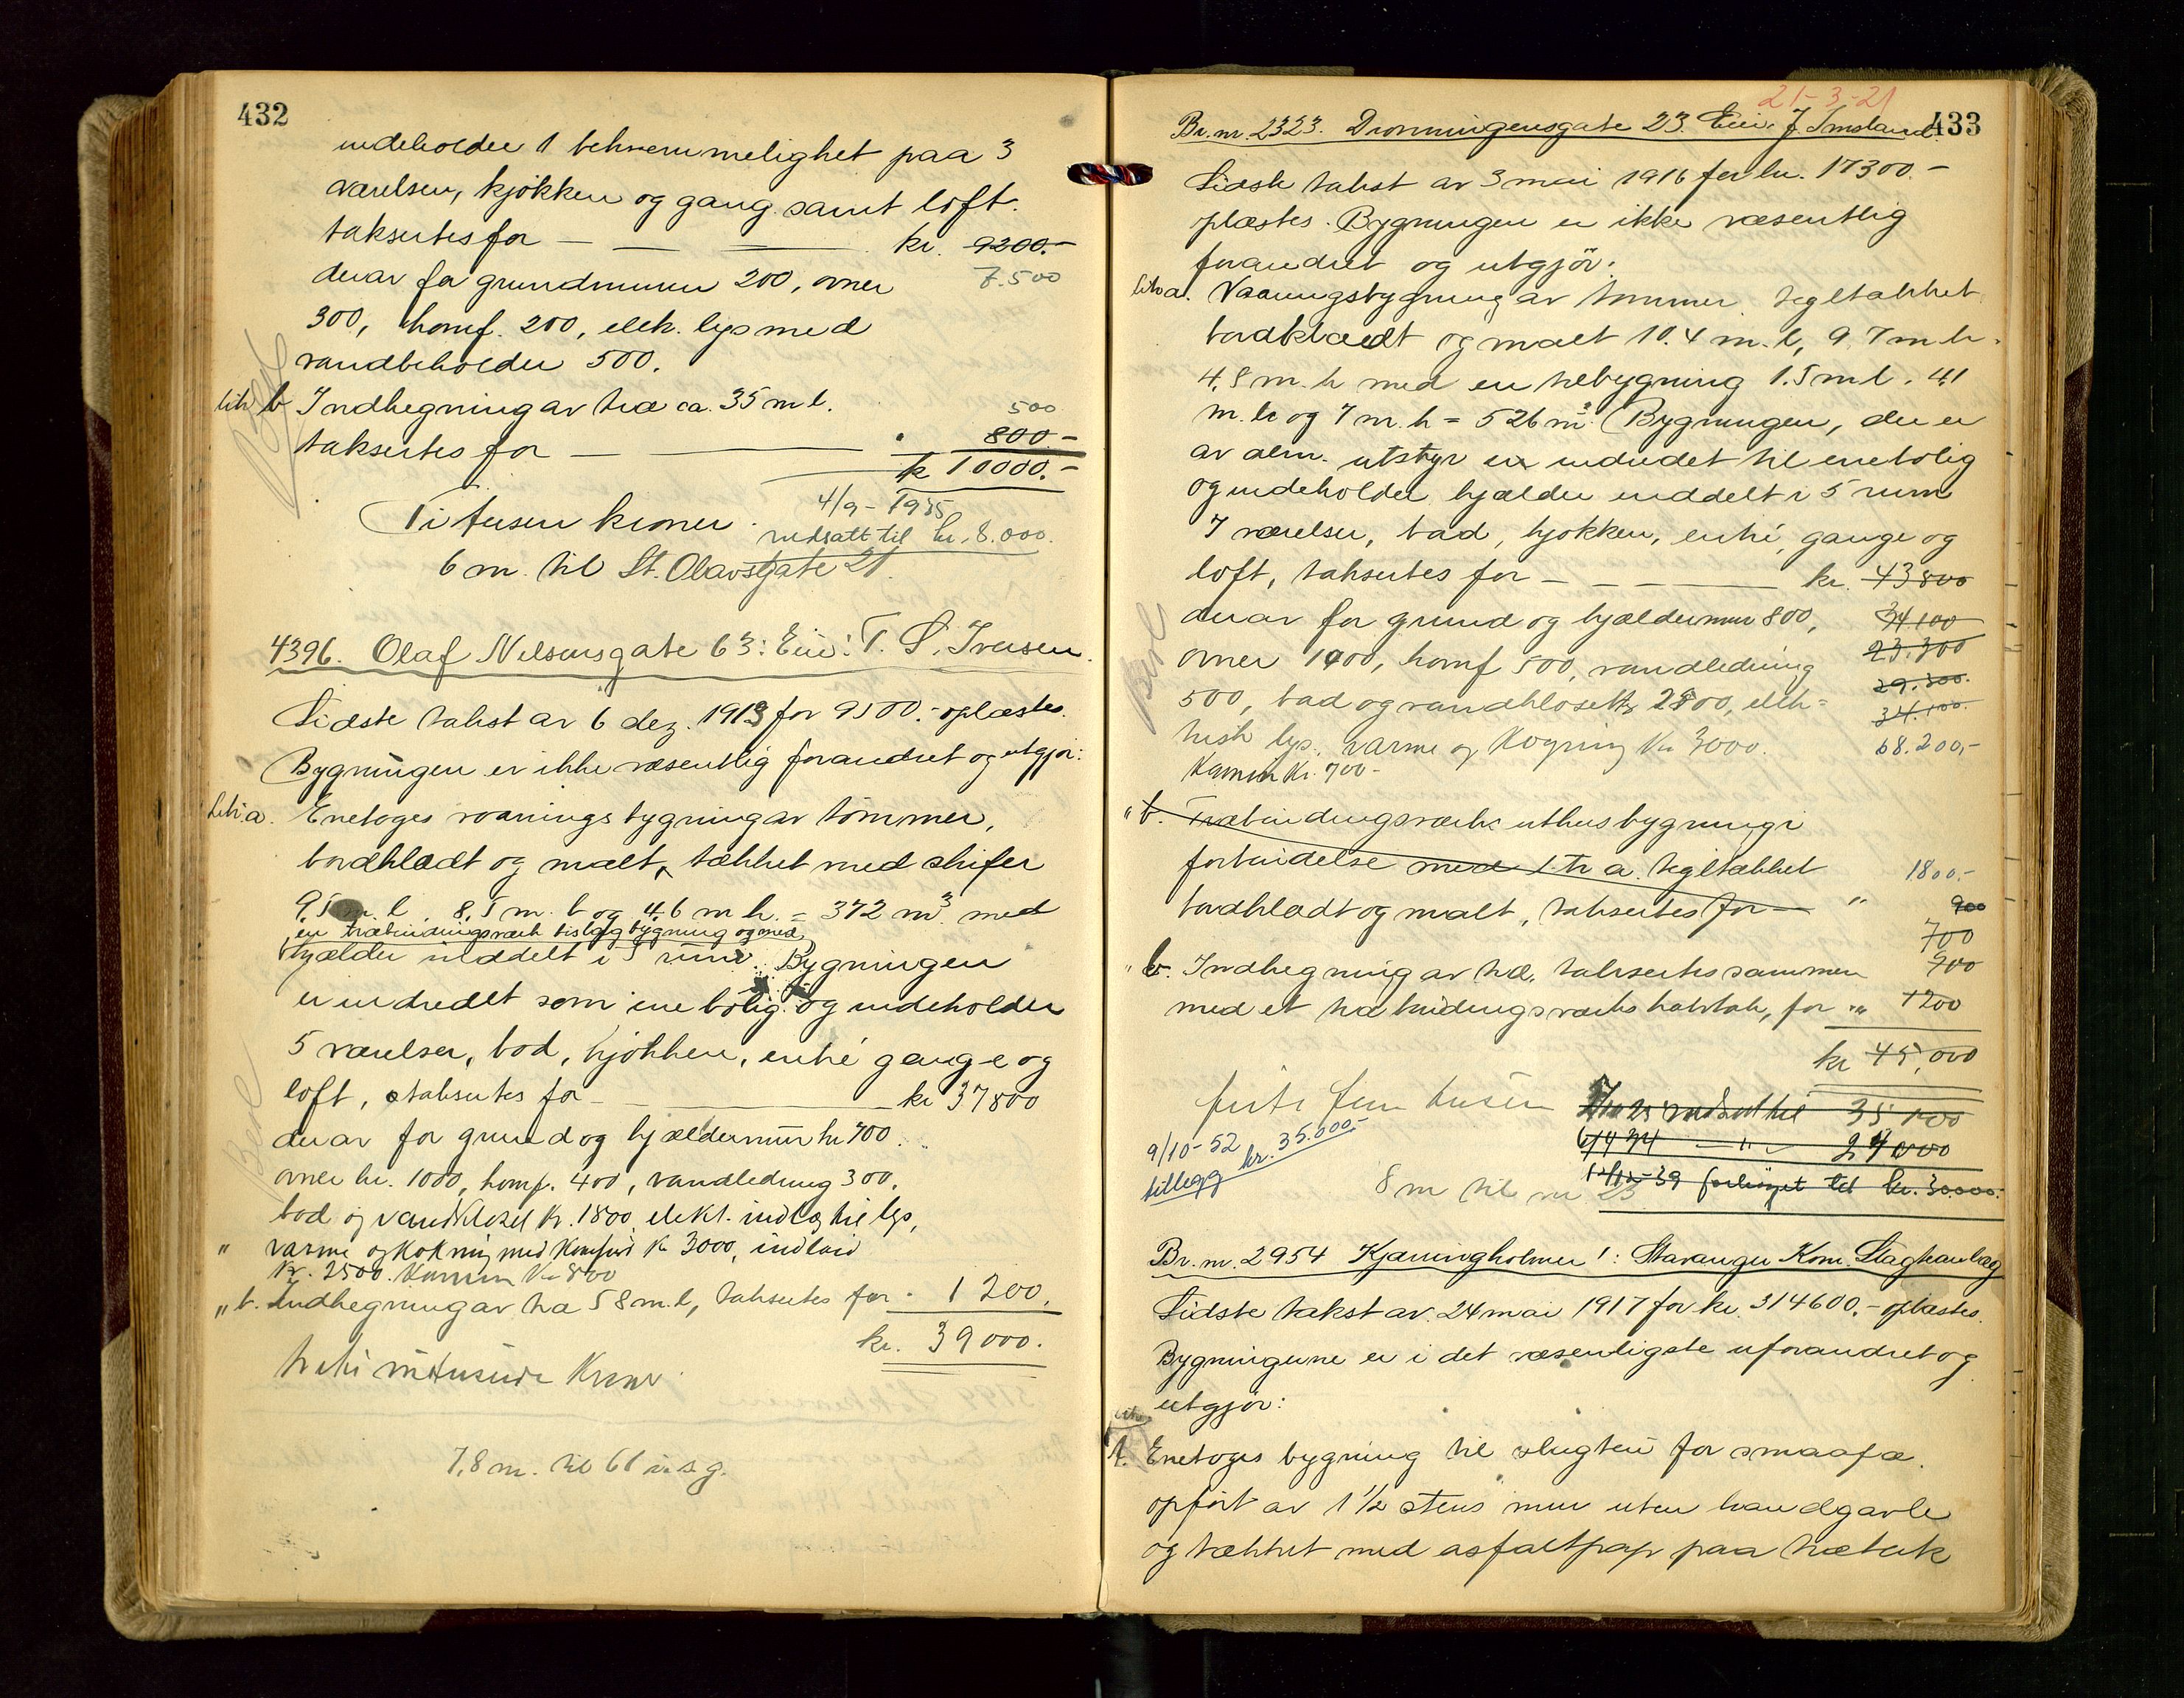 432
indeholder 1 bekvemmelighet paa 3
værelser, kjökken og gang samt loft.
taksertes for — — — kr. 9200.-
derav for grundmuren 200, ovner 7.500
300, komf. 200, elek. lys med
vandbeholder 500.
litr b Indhegning av træ ca. 35 m l. 500
taksertes for — — 800-
kr 10000.-
Ti tusen kroner. 4/9-1935
nedsatt til kr. 8.000.
6 m. til St. Olavsgate 21.
4396. Olaf Nilsensgate 63: Eier: T. S. Iversen.
Sidste takst av 6 dez. 1913 for 9500.- oplæstes.
Bygningen er ikke væsentlig forandret og utgjör:
Litr. a. Enetages vaaningsbygning av tömmer,
bordklædt og malt, tækket med skifer
9.5 m. l. 8.5 m. b og 4.6 m h. = 372 m³ med
en træbindingsværk bislagbygning og med
kjælder inddelt i 5 rum. Bygningen
er indredet som enebolig og indeholder
5 værelser, bad, kjökken, entré gange og
loft, taksertes for — kr 37800
derav for grund og kjældermur kr 700.
ovner kr. 1000, komf. 400, vandledning 300,
bad og vandklosel kr. 1800, elekt. indlæg til lys,
" varme og kokning med komfur kr 3000, indlaid
kr. 2500. Kamin kr 800
" b. Indhegning av træ 58 m. l, taksertes for - 1200.
kr. 39000.
Tretti nitusinde Kroner
7,8 m. til 61 i s. g.
21-3-21
433
Br. nr. 2323. Dronningensgate 23. Eier J. Imsland.
Sidste takst av 3 mai 1916 for kr. 17300.-
oplæstes. Bygningen er ikke væsentlig
forandret og utgjör:
litr a. Vaaningsbygning av tömmer, tegltækket
bordklædt og malt 10.4 m. l, 9.7 m. br.
4,8 m. h med en tilbygning 1.5 m l. 4,1
m. br og 7 m. h = 526 m³. (Bygningen, der er
av alm. utstyr er indredet til enebolig
og indeholder kjælder inddelt i 5 rum
7 værelser, bad, kjökken, entré, gange og
loft, taksertes for — — — kr. 43800
derav for grund og kjældermur 800, 34100
ovner 1000, komf 500, vandledning 23.300
500, bad og vandkloset kr 2800, elek= 29.300.
trisk lys, varme og kogning kr 3000. 34.100.
68.200,-
Kamin kr. 700-
" b. Træbindingsværks uthusbygning i
forbindelse med litr a. tegltækket 1800.-
bordklædt og malt, taksertes for — " 900
700
" b. Indhegning av træ, taksertes sammen 900
med et træbindingsværks halvtak, for " 1200
kr 45,000
firti fem tusen 35 100
6/4 34 — " — 24000
12/12-39 forhöyet til kr. 30.000.-
9/10-52
tillegg kr. 35.000.-
8 m til nr 25
Br. nr. 2954 Kjæringholmen 1: Stavanger Kom. Slagteanlæg
Sidste takst av 24 mai 1917 for kr. 314600.- oplæstes.
Bygningerne er i det væsentligste uforandret og
utgjör:
Litr
1. Enetages bygning til slagteri for smaafæ.
opfört av 1½ stens mur uten brandgavle
og tækket med asfaltpap paa trætak